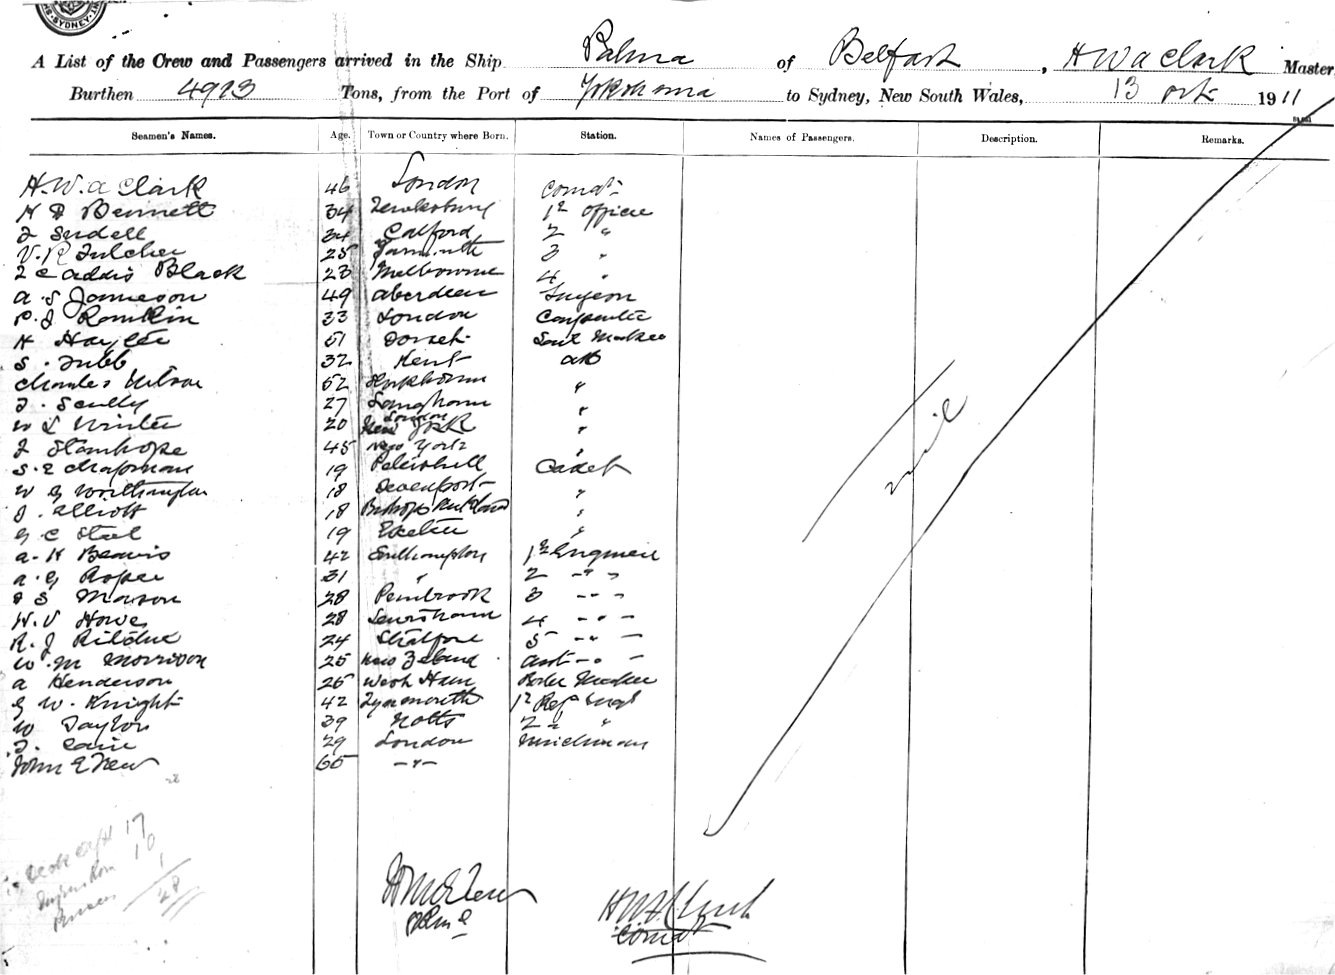 SYDNEY
A List of the Crew and Passengers arrived in the Ship Palma of Belfast, H W A Clark Master
Burthen 4923 Tons, from the Port of Yokohama to Sydney, New South Wales, 13 Oct 1911
Seamen's Names. Age. Town or Country where Born. Station. Names of Passengers. Description. Remarks.
H. W. A Clark 46 London Comdr
Bennett 34 Tewksbury 1st Officer
Sudell 34 Catford 2 "
V. R Fulcher 25 Yarmouth 3 "
Addis Black 23 Melbourne 4 "
A. S Jamieson 49 Aberdeen Surgeon
P. J Rankin 33 London Carpenter
H 51 Dorset Sail Maker
S. Tubb 32 Kent AB
Charles Wilson 52 "
Scully 27 "
London
W L Winter 20 New York "
J Stanhope 45 New York "
S. E Chapman 19 Cadet
W G 18 Devenport "
J. Elliott 18 Bishop Auckland "
G C Steel 19 Exeter "
A. H Beavis 42 Southampton 1st Engineer
A. G Roper 31 " 2 - " -
S Mason 28 Pembrook 3 - " -
H. V Howes 28 Lewisham 4 - " -
R. J Ritchie 24 Stratford 5 - " -
W. M Morrison 25 New Zeland Asst - " -
A Henderson 25 West Ham Boiler Maker
G W. Knight 42 Tynemouth 1st Refg Engr
W Taylor 39 Notts 2d "
29 London
John E New 65 - " -
nil
28
Deck Dept 17
Engine Room 10
Purser 1
28
John E New
H W A Clark
Comdr